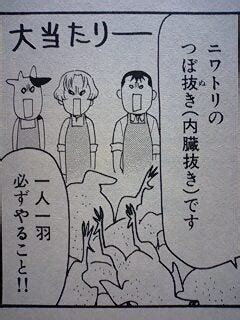 大当たりー
ニワトリの
つぼ抜き(内臓抜き)です
ぬ
一人一羽
必ずやること!!